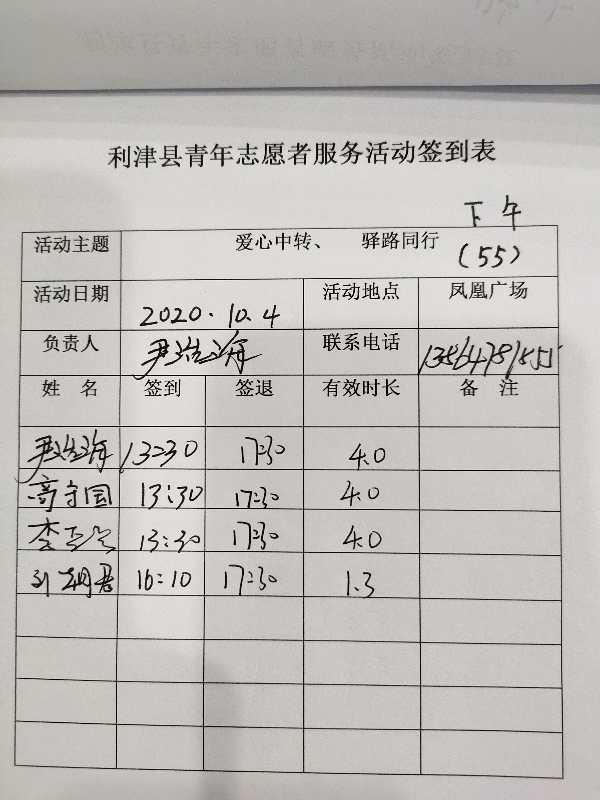 利津县青年志愿者服务活动签到表
下午
活动主题 爱心中转、 驿路同行 (55)
活动日期 2020.10.4 活动地点 凤凰广场
负责人 尹浩海 联系电话
姓名 签到 签退 有效时长 备注
尹浩海 13:30 17:30 4.0
高守国 13:30 17:30 4.0
李 13:30 17:30 4.0
刘 君 16:10 17:30 1.3